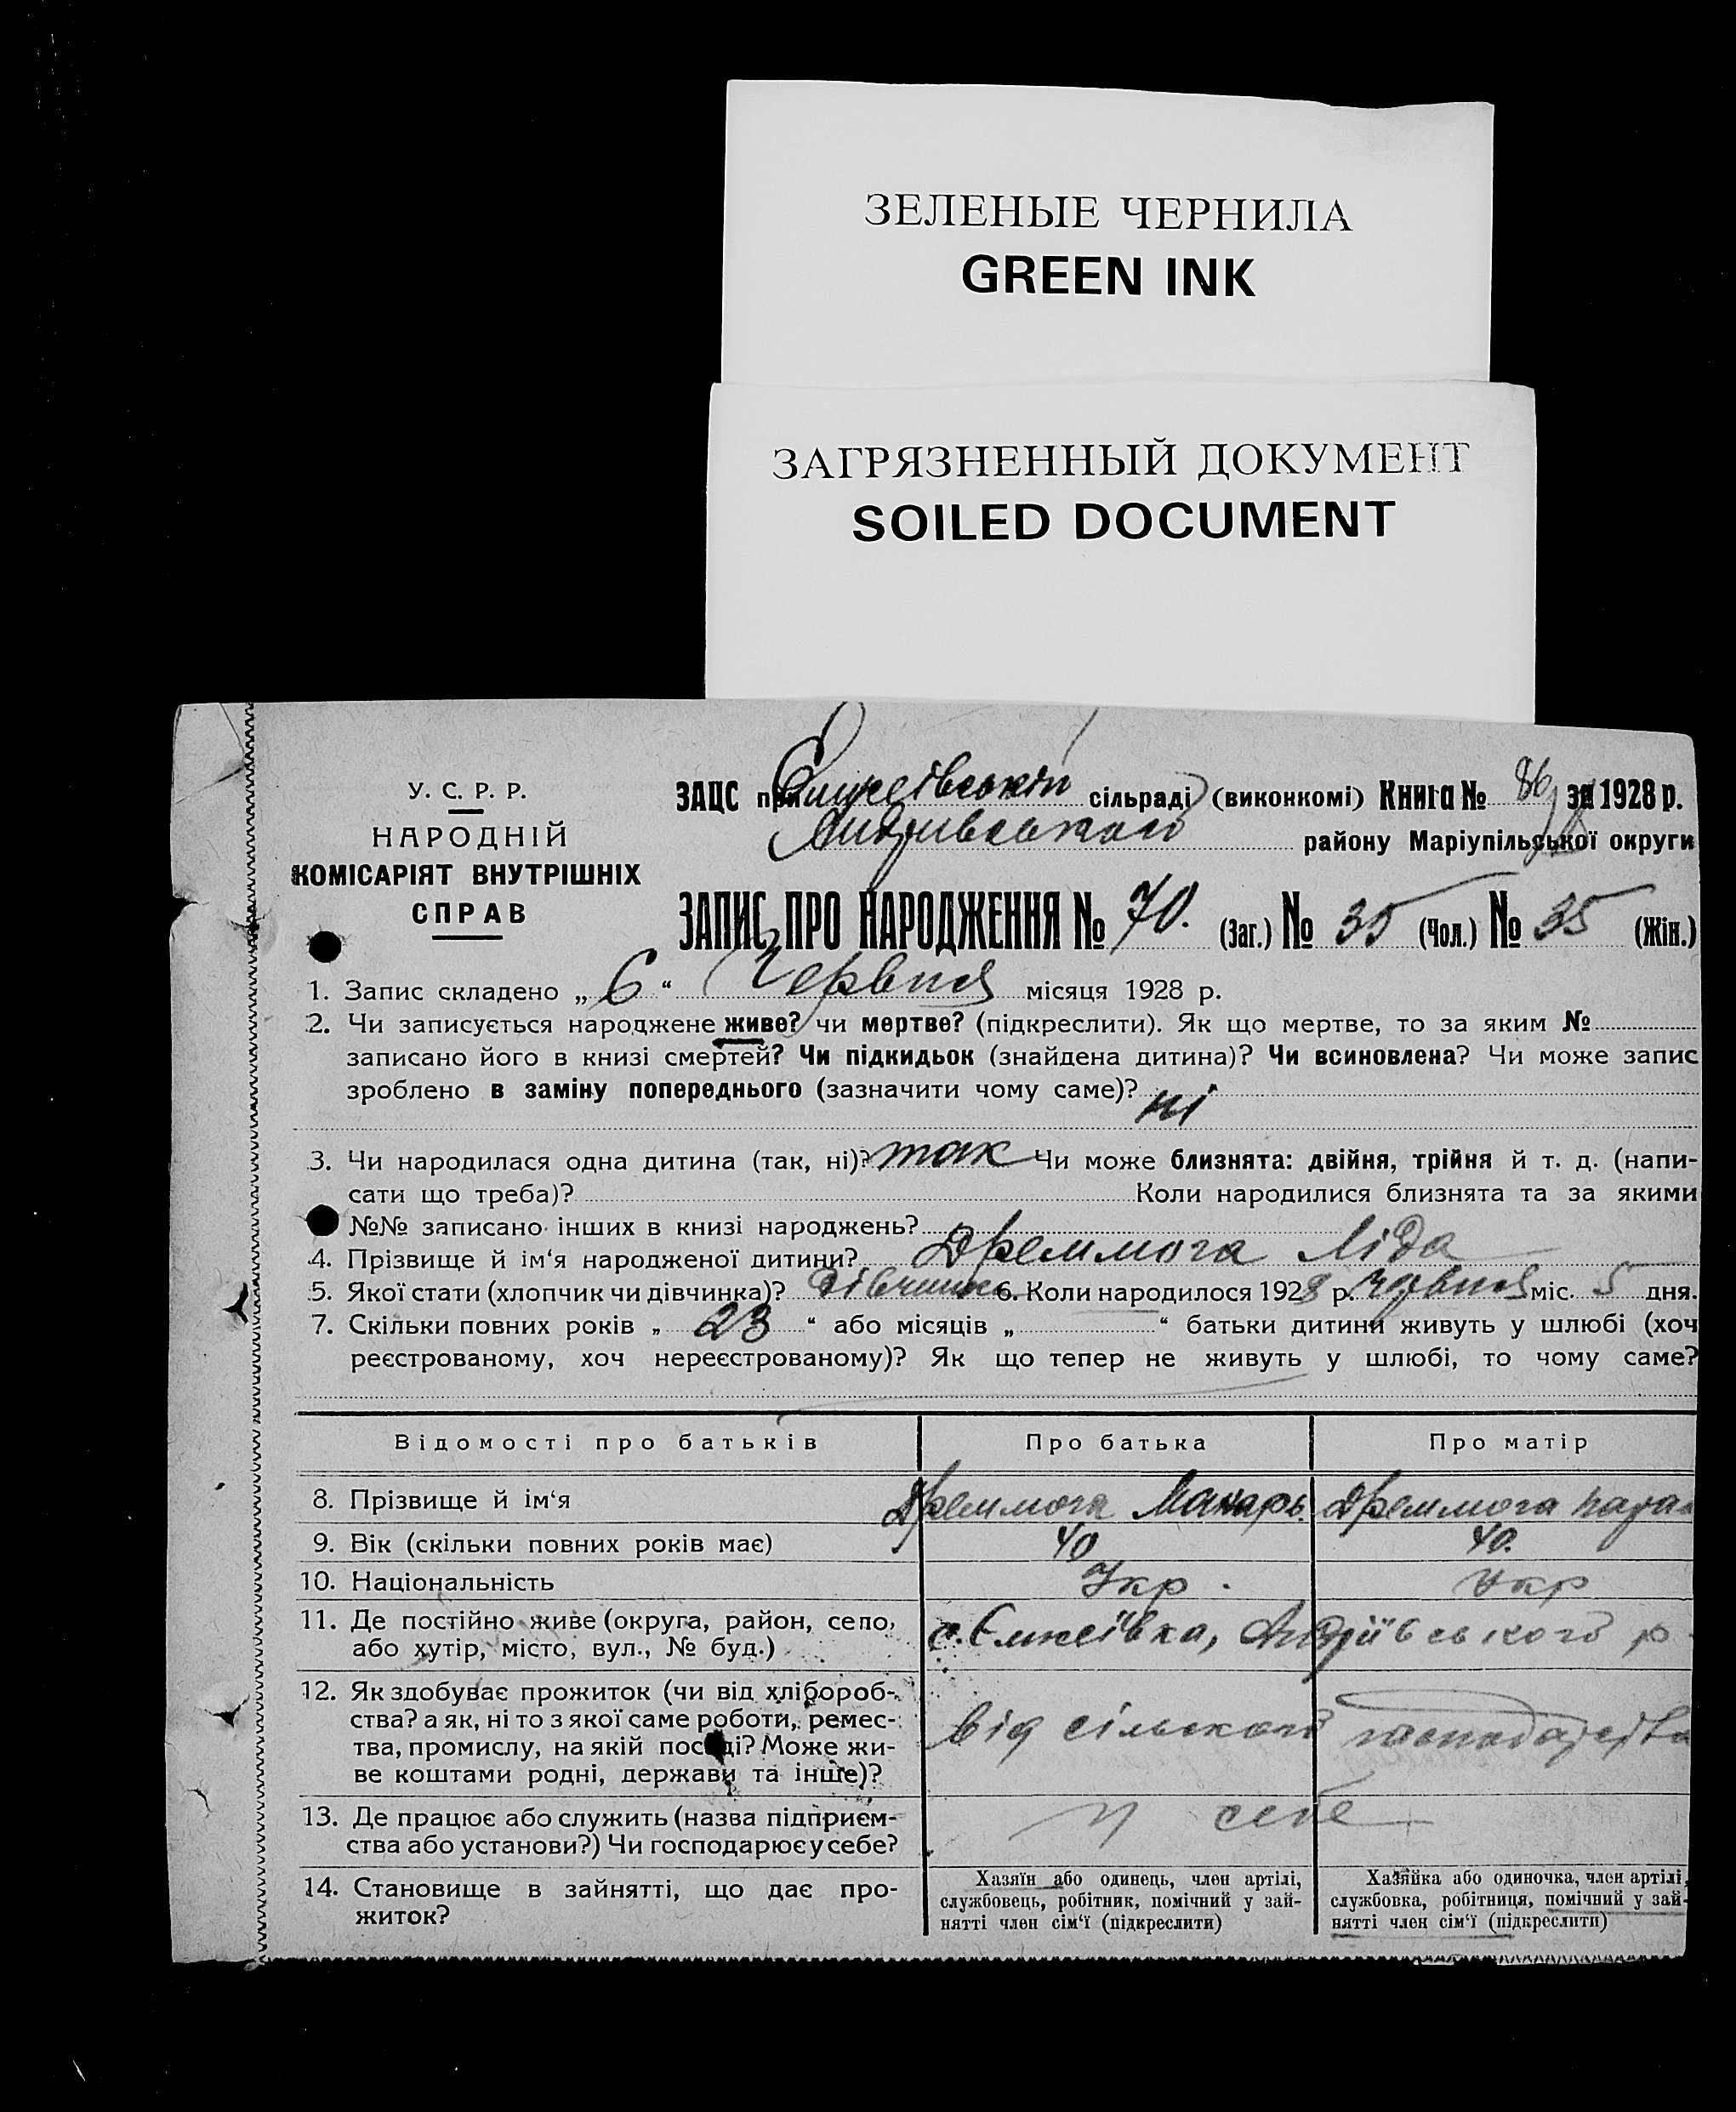 ЗЕЛЕНЫЕ ЧЕРНИЛА
GREEN INK
ЗАГРЯЗНЕННЫЙ ДОКУМЕНТ
SOILED DOCUMENT
У. С. Р. Р.
НАРОДНІЙ
КОМІСАРІЯТ ВНУТРІШНІХ
СПРАВ
ЗАЦС при сільраді (виконкомі) Книга № за 1928 р.
району Маріупільської округи
ЗАПИС ПРО НАРОДЖЕННЯ № 70. (Заг.) № 35 (Чол.) № 35 (Жін.)
1. Запис складено „ 6 “ Червня місяця 1928 р.
2. Чи записується народжене живе? чи мертве? (підкреслити). Як що мертве, то за яким №
записано його в книзі смертей? Чи підкидьок (знайдена дитина)? Чи всиновлена? Чи може запис
зроблено в заміну попереднього (зазначити чому саме)? ні
3. Чи народилася одна дитина (так, ні)? так Чи може близнята: двійня, трійня й т. д. (напи-
сати що треба)? Коли народилися близнята та за якими
№№ записано інших в книзі народжень?
4. Прізвище й ім‘я народженої дитини? Дреммога Ліда
5. Якої стати (хлопчик чи дівчинка)? дівчинка 6. Коли народилось 1928 р. червня міс. 5 дня.
7. Скільки повних років „ 23 “ або місяців „ “ батьки дитини живуть у шлюбі (хоч
реєстрованому, хоч нереєстрованому)? Як що тепер не живуть у шлюбі, то чому саме?
Відомості про батьків Про батька Про матір
8. Прізвище й ім‘я Дреммога Макарь. Дреммога
9. Вік (скільки повних років має) 40 40.
10. Національність Укр. Укр
11. Де постійно живе (округа, район, село,
або хутір, місто, вул., № буд.) Андріївського р.
12. Як здобуває прожиток (чи від хлібороб-
ства? а як, ні то з якої саме роботи, ремес-
тва, промислу, на якій посаді? Може жи-
ве коштами родні, держави та інше)? від сільского господарства
13. Де працює або служить (назва підприєм-
ства або установи?) Чи господарює у себе? у себе
14. Становище в зайнятті, що дає про-
житок?
Хазяїн або одинець, член артілі,
службовець, робітник, помічний у зай-
нятті член сім‘ї (підкреслити)
Хазяйка або одиночка, член артілі,
службовка, робітниця, помічний у зай-
нятті член сім‘ї (підкреслити)